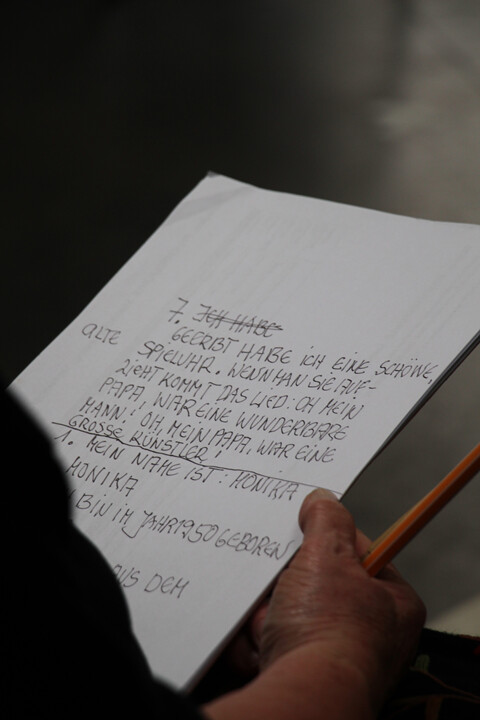 7. ICH HABE
GEERBT HABE ICH EINE SCHÖNE,
ALTE SPIELUHR. WENN MAN SIE AUF-
ZIEHT KOMMT DAS LIED: OH MEIN
PAPA, WAR EINE WUNDERBARE
MANN! OH, MEIN PAPA, WAR EINE
GROSSE KÜNSTLER!
1. MEIN NAME IST: MONIKA
MONIKA
BIN IM JAHR 1950 GEBOREN
AUS DEM